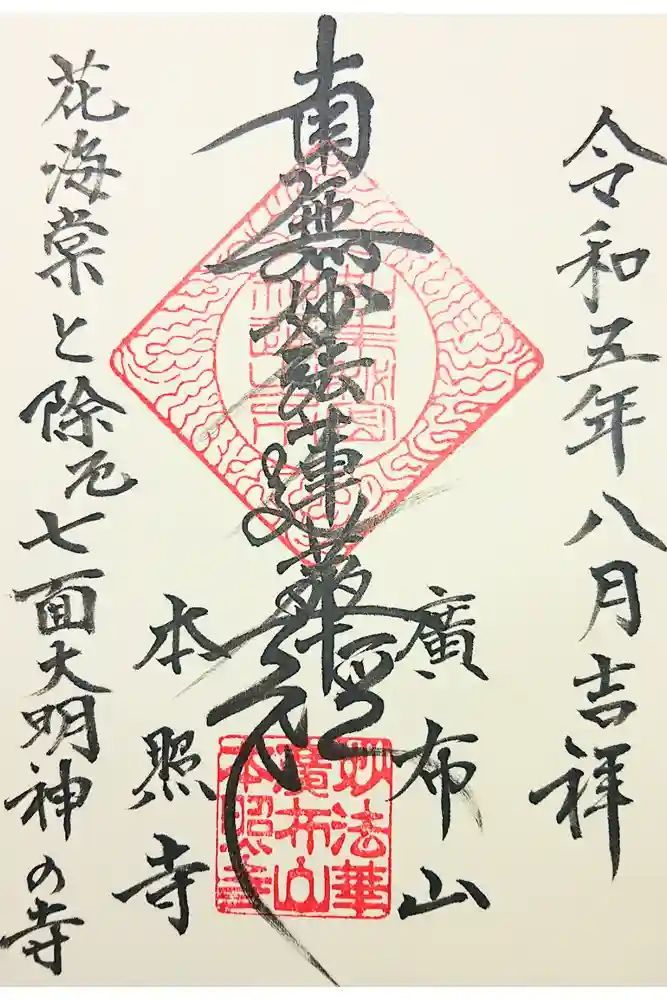 令和五年八月吉祥
廣布山
南無妙法蓮華經
本照寺
花海棠と除厄七面大明神の寺
妙法華
廣布山
本照寺